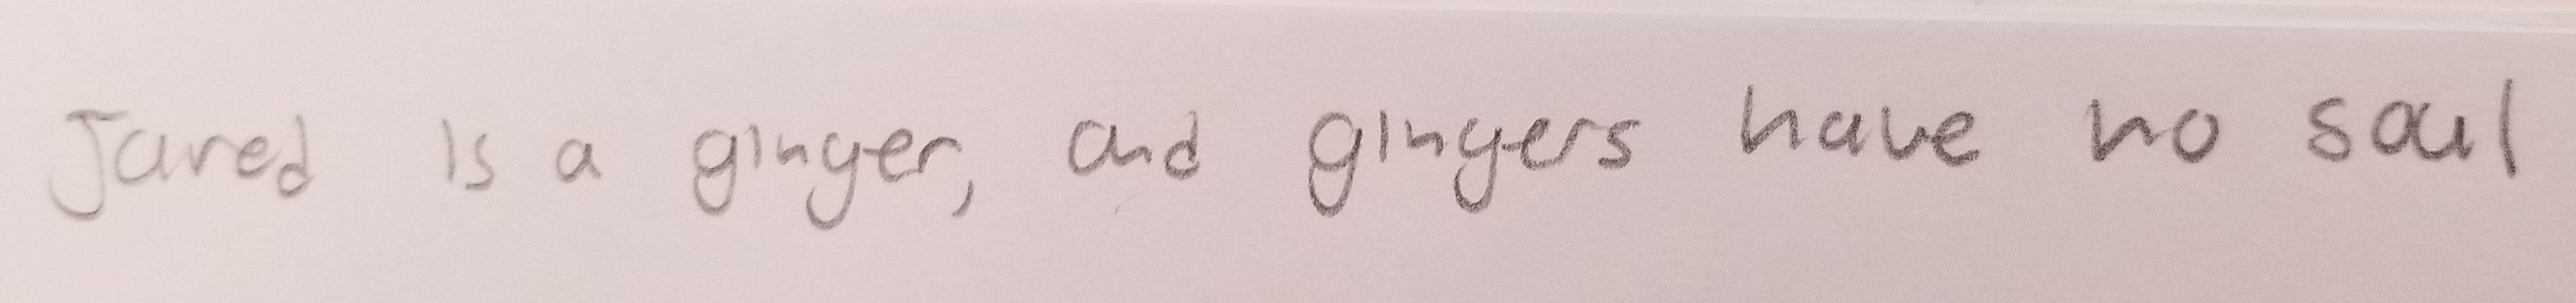 Jared is a ginger, and gingers have no soul